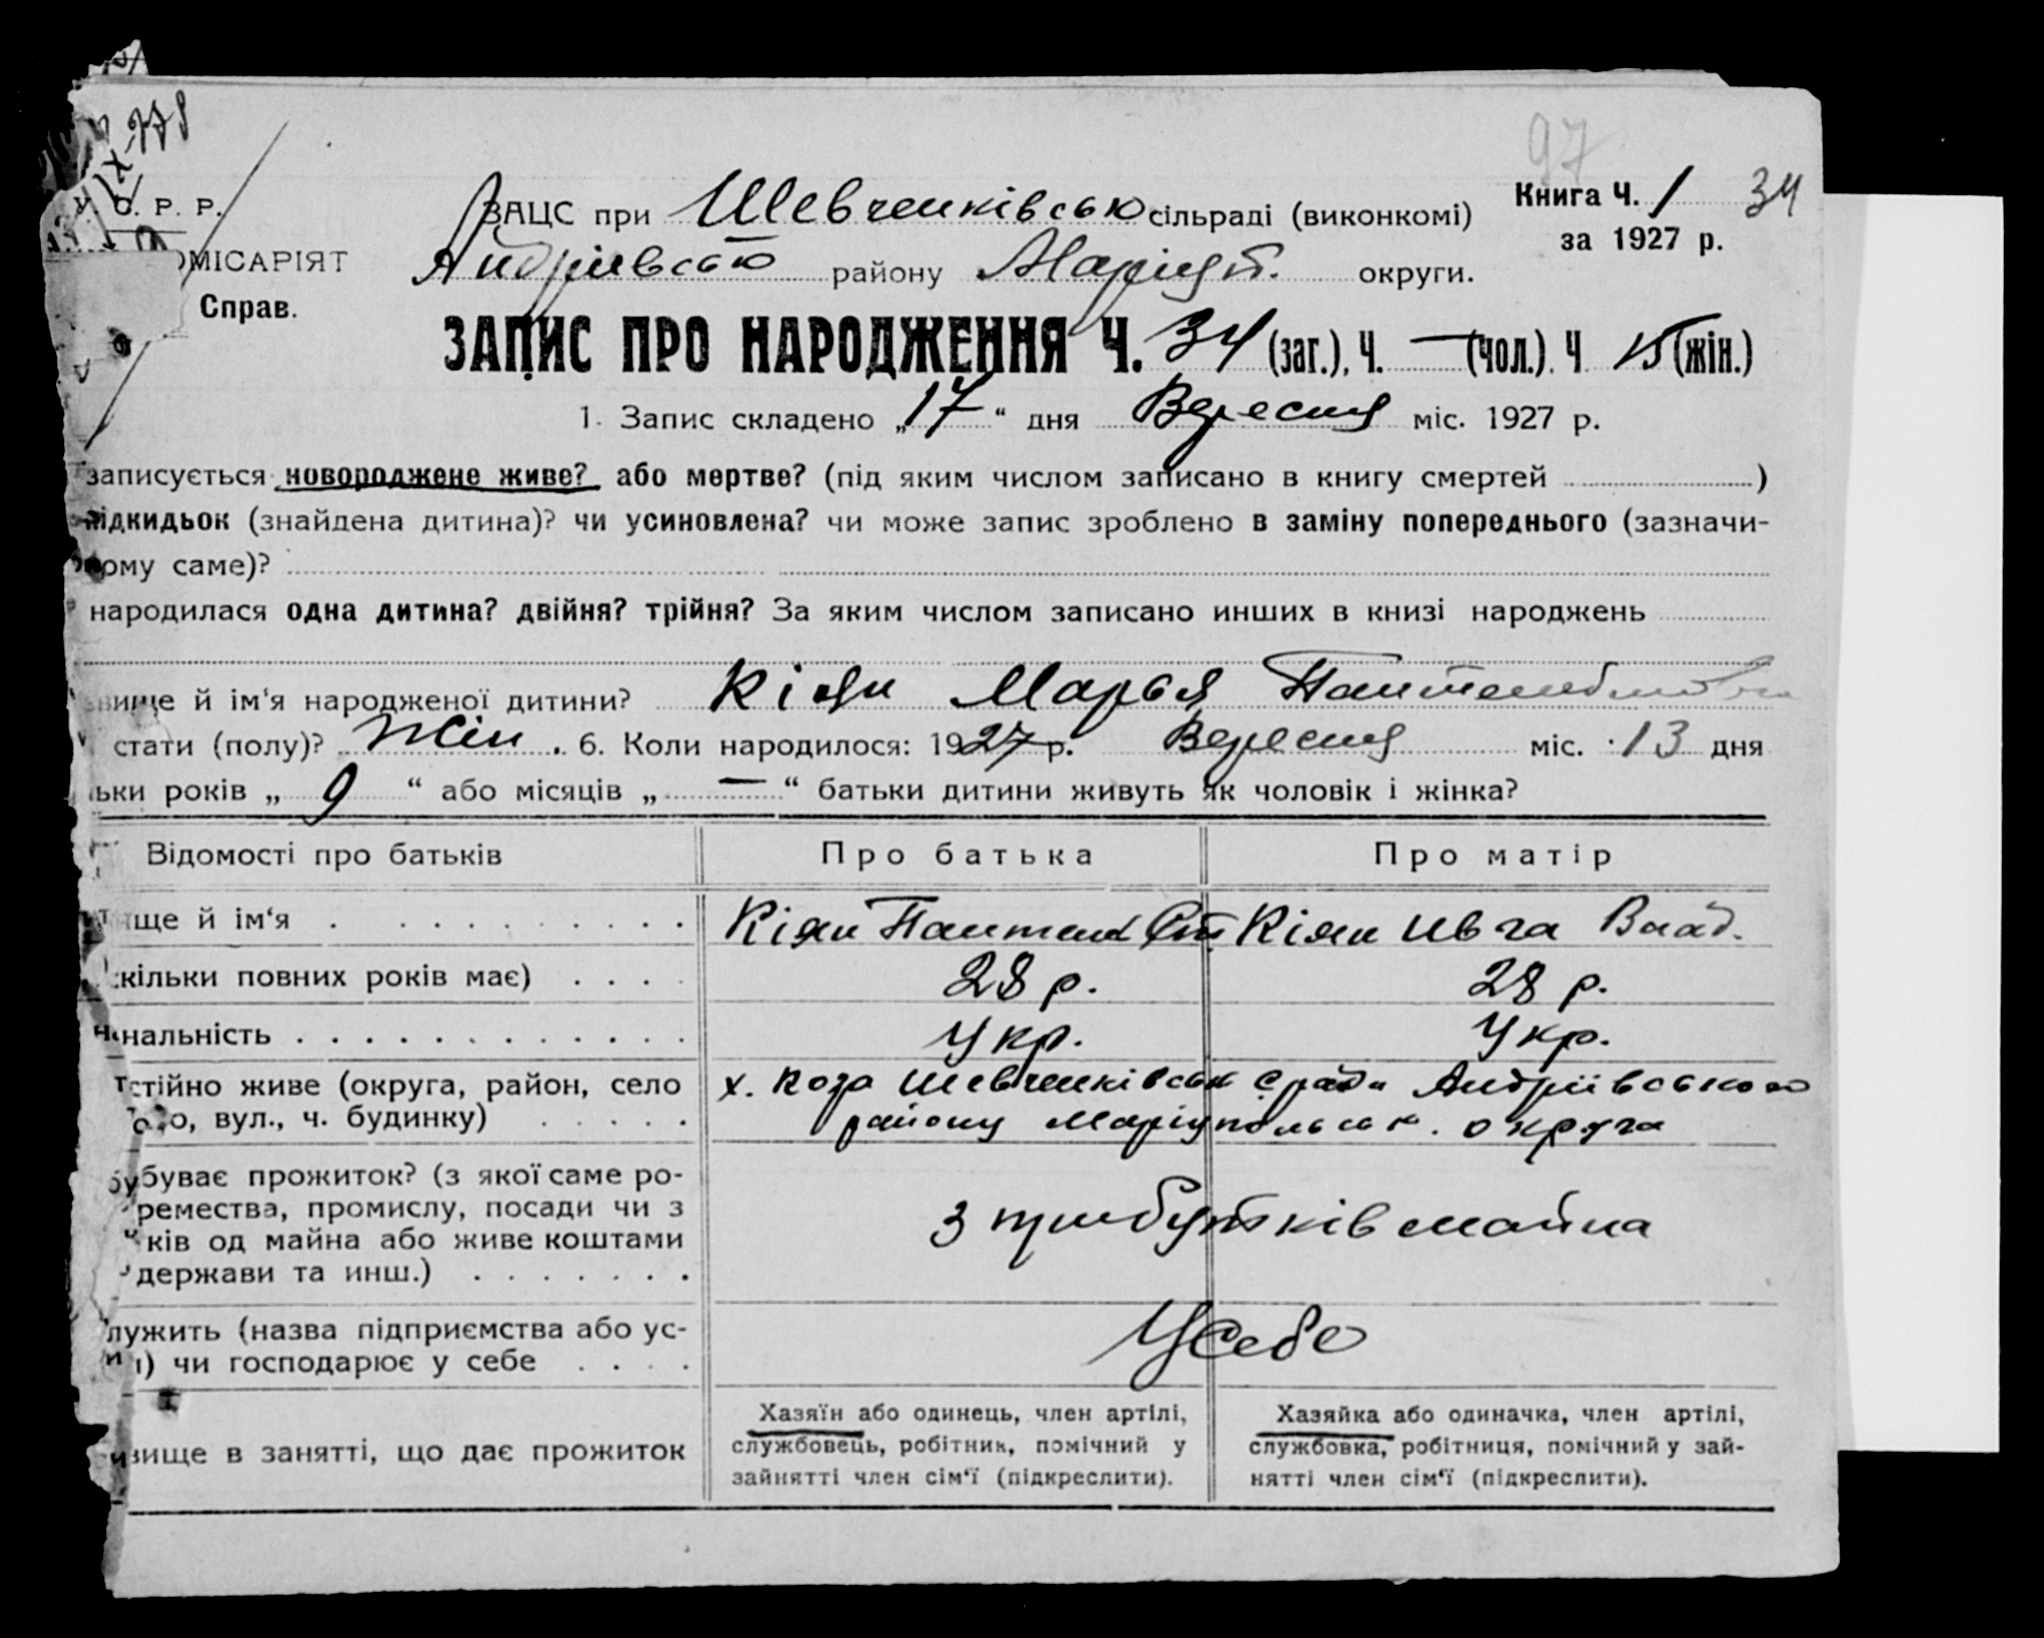 278
97
У. С. Р. Р.
ЗАЦС при Шевченківською сільраді (виконкомі) Книга Ч. 1 34
за 1927 р.
ОМІСАРІЯТ Андріївською району Маріуп. округи.
Справ.
ЗАПИС ПРО НАРОДЖЕННЯ Ч. 34 (заг.), Ч. — (чол.). Ч 15 (жін.)
1. Запис складено „17“ дня Вересня міс. 1927 р.
записується новороджене живе? або мертве? (під яким числом записано в книгу смертей )
підкидьок (знайдена дитина)? чи усиновлена? чи може запис зроблено в заміну попереднього (зазначи-
ому саме)?
народилася одна дитина? двійня? трійня? За яким числом записано инших в книзі народжень
вище й ім‘я народженої дитини? Кіян Марья
стати (полу)? Жін. 6. Коли народилося: 1927 р. Вересня міс. 13 дня
ьки років „ 9 “ або місяців „ — “ батьки дитини живуть як чоловік і жінка?
Відомості про батьків Про батька Про матір
ще й ім‘я Кіян Пантел Кіян Ивга Влад.
скільки повних років має) 28 р. 28 р.
нальність Укр. Укр.
стійно живе (округа, район, село х. Коза Шевченківськ с/ради Андріївського
о, вул., ч. будинку) району Маріупольськ. округа
буває прожиток? (з якої саме ро-
ремества, промислу, посади чи з
ків од майна або живе коштами
держави та инш.)
з прибутків майна
лужить (назва підприємства або ус-
и) чи господарює у себе
У себе
вище в занятті, що дає прожиток
Хазяїн або одинець, член артілі,
службовець, робітник, помічний у
зайнятті член сім‘ї (підкреслити).
Хазяйка або одиначка, член артілі,
службовка, робітниця, помічний у зай-
нятті член сім‘ї (підкреслити).